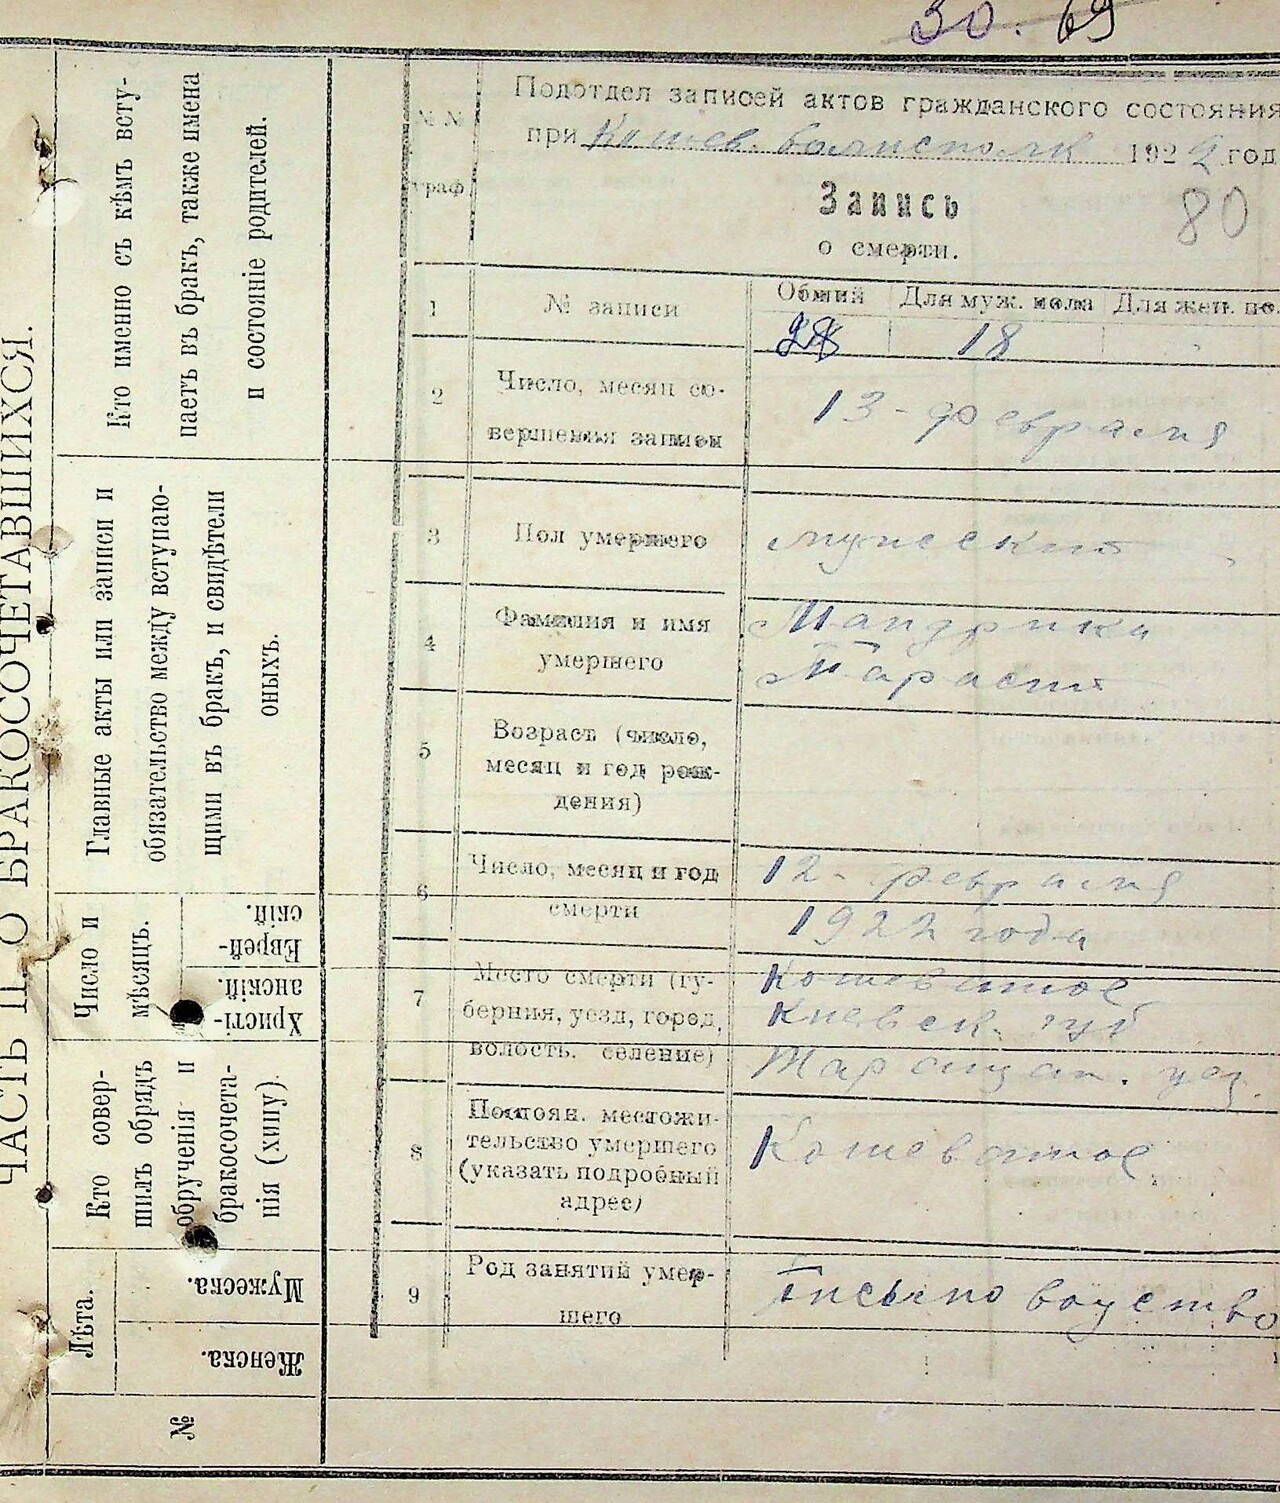 30. 69
Подотдел записей актов гражданского состояния
при Кошев. волисполк 1922 год
80
Запись
о смерти.
№№ граф
1 № записи
Общий Для муж. пола Для жен. по.
18
2 Число, месяц со-
вершения записи
13 - февраля
3 Пол умершего
мужеский
4 Фамилия и имя
умершего
Мандрика
Тарасий
5 Возраст (число,
месяц и год рож-
дения)
6 Число, месяц и год
смерти
12 - февраля
1922 года
7 Место смерти (гу-
берния, уезд, город,
волость. селение)
Кошеватое
Киевск. губ
Таращан. уез.
8 Постоян. местожи-
тельство умершего
(указать подробный
адрес)
Кошеватое
9 Род занятий умер-
шего
ЧАСТЬ II. О БРАКОСОЧЕТАВШИХСЯ.
Кто именно съ кѣмъ всту-
паетъ въ бракъ, также имена
и состояніе родителей.
Главные акты или записи и
обязательство между вступаю-
щими въ бракъ, и свидѣтели
оныхъ.
Число и
мѣсяцъ.
Еврей-
скій.
Христі-
анскій.
Кто совер-
шилъ обрядъ
обрученія и
бракосочета-
нія (хипу)
Лѣта.
Мужеска.
Женска.
№